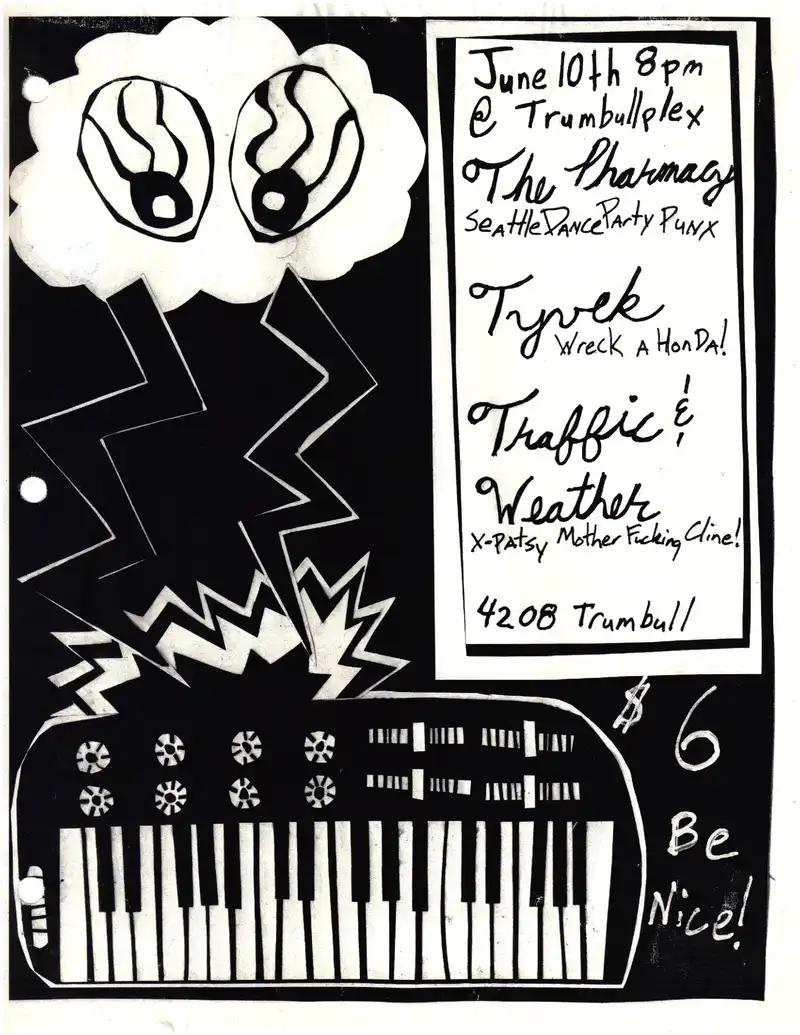 June 10th 8pm
@ Trumbullplex
The Pharmacy
Seattle Dance Party Punx
Tyvek
Wreck A HonDa!
Traffic &
Weather
X-Patsy Mother Fucking Cline!
4208 Trumbull
$6
Be
Nice!